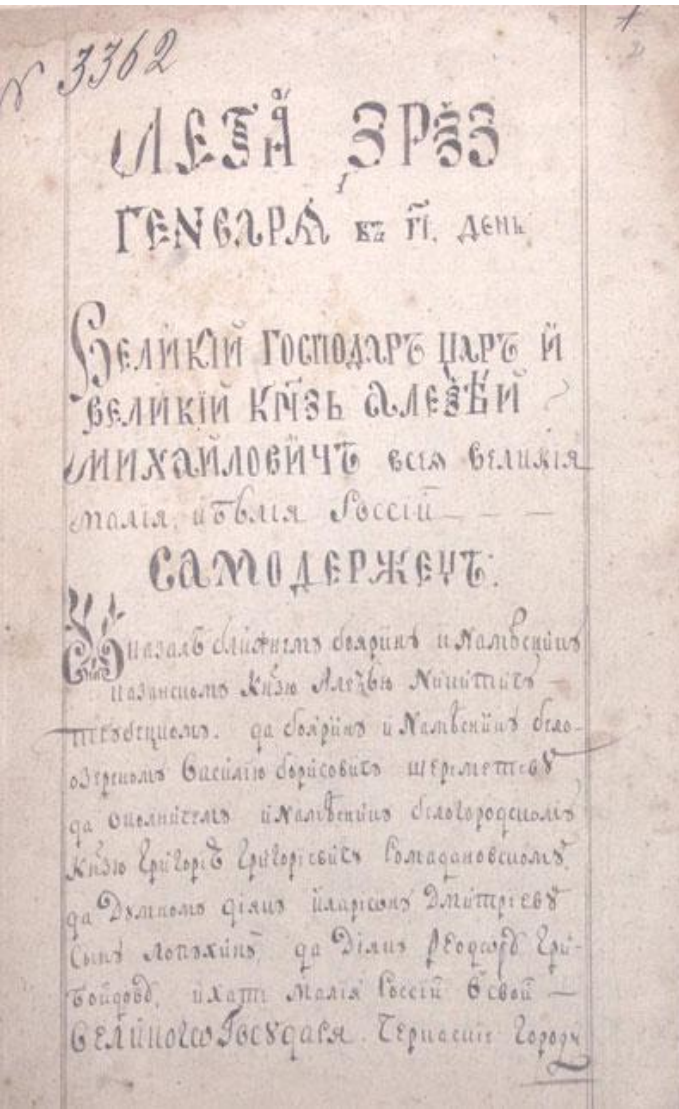 № 3362
ЛЕТА ЗРЗЗ
ГЕНВАРЯ въ гі. день
Великій Господаръ царъ й
великій кнзь Алезѣй
Михайловичъ всея великія
малія, и бѣлія Россій
САМОДЕРЖЕЦЪ:
казалъ ближнему боярину и Намѣснику
казанскому Кнзю Алезѣю Никитичу
Трубецкому. да боярину и Намѣснику бело-
озерскому Василію борисовичу шереметеву
да околничему и Намѣснику белогородскому
Кнзю Григорію Григоріевичу Ромадановскому.
да Думному діяку иларіону Дмитріеву
Сыну Лопухину, да Діяку Ѳеодору Гри-
боѣдову, ихати малія Россій в свой
Великого Государя. Черкаскіе городи